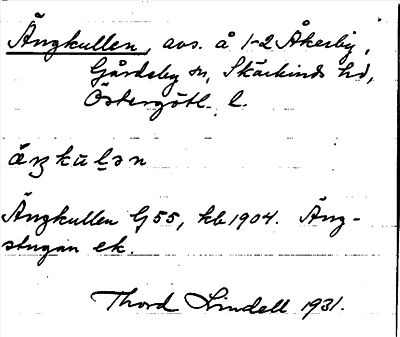 Ängkullen, avs. å 1-2 Åkerby,
Gårdeby sn, Skärkinds hd,
Östergötl. l.
äŋkulən
Ängkullen G 55, kb 1904. Äng-
stugan ek.
Thord Lindell 1931.